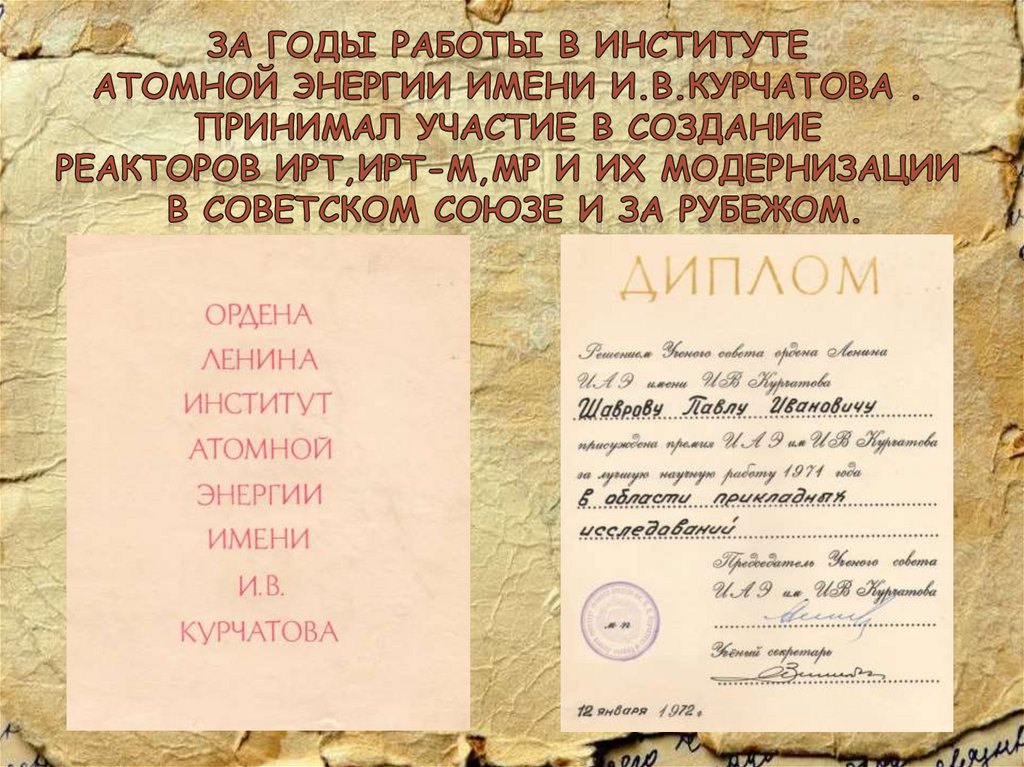 ЗА ГОДЫ РАБОТЫ В ИНСТИТУТЕ
АТОМНОЙ ЭНЕРГИИ ИМЕНИ И.В.КУРЧАТОВА .
ПРИНИМАЛ УЧАСТИЕ В СОЗДАНИЕ
РЕАКТОРОВ ИРТ,ИРТ-М,МР И ИХ МОДЕРНИЗАЦИИ
В СОВЕТСКОМ СОЮЗЕ И ЗА РУБЕЖОМ.
ОРДЕНА
ЛЕНИНА
ИНСТИТУТ
АТОМНОЙ
ЭНЕРГИИ
ИМЕНИ
И.В.
КУРЧАТОВА
ДИПЛОМ
Решением Ученого совета ордена Ленина
ИАЭ имени ИВ Курчатова
Шаврову Павлу Ивановичу
присуждена премия ИАЭ им ИВ Курчатова
за лучшую научную работу 1971 года
в области прикладных
исследований
Председатель Ученого совета
ИАЭ им ИВ Курчатова
Учёный секретарь
м-п
12 января 1972 г